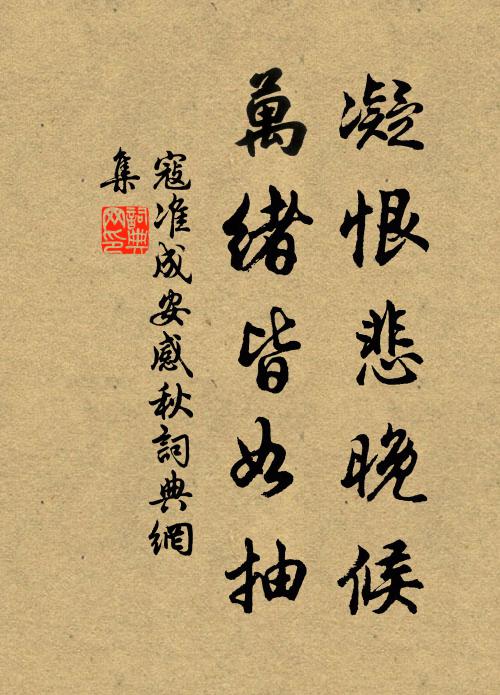 凝恨悲晚候
萬緒皆如抽
寇准成安感秋詞典網
集
詞典
网印